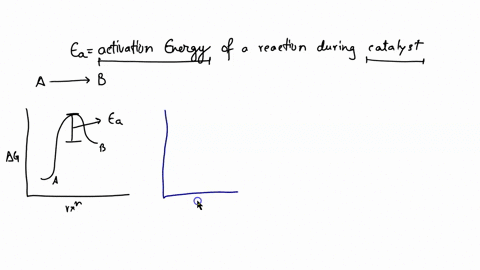 Ea = activation Energy of a reaction during catalyst
A ⟶ B
Ea
B
ΔG
A
rxⁿ